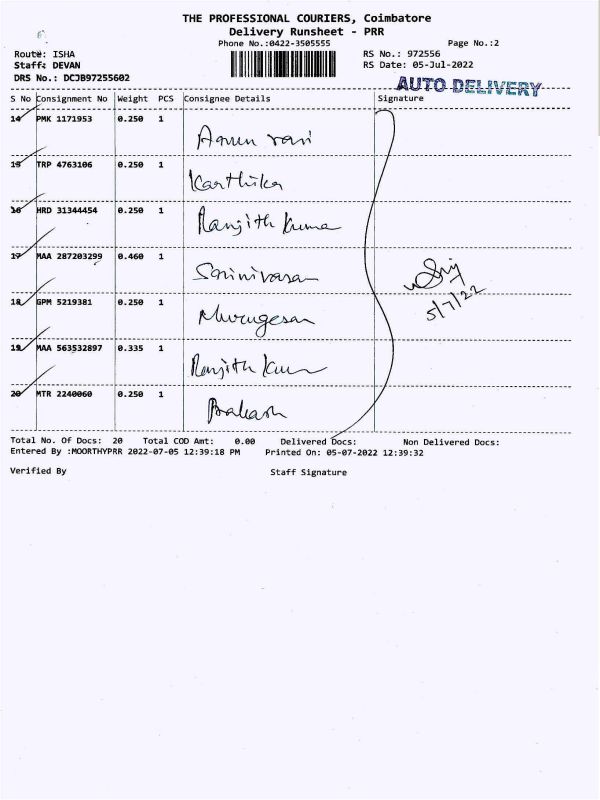 THE PROFESSIONAL COURIERS, Coimbatore
Delivery Runsheet - PRR
Phone No.:0422-3505555
Page No.:2
Route: ISHA
RS No.: 972556
Staff: DEVAN
RS Date: 05-Jul-2022
DRS No.: DCJB97255602
AUTO DELIVERY
S No Consignment No Weight PCS Consignee Details Signature
14 PMK 1171953 0.250 1
Arun ravi
15 TRP 4763106 0.250 1
Karthika
16 HRD 31344454 0.250 1
Ranjith Kumar
17 MAA 287203299 0.460 1
Srinivasan
18 GPM 5219381 0.250 1
5/7/22
Murugesan
19 MAA 563532897 0.335 1
Ranjith Kumar
20 MTR 2240060 0.250 1
Prakash
Total No. Of Docs: 20 Total COD Amt: 0.00 Delivered Docs: Non Delivered Docs:
Entered By :MOORTHYPRR 2022-07-05 12:39:18 PM Printed On: 05-07-2022 12:39:32
Verified By Staff Signature